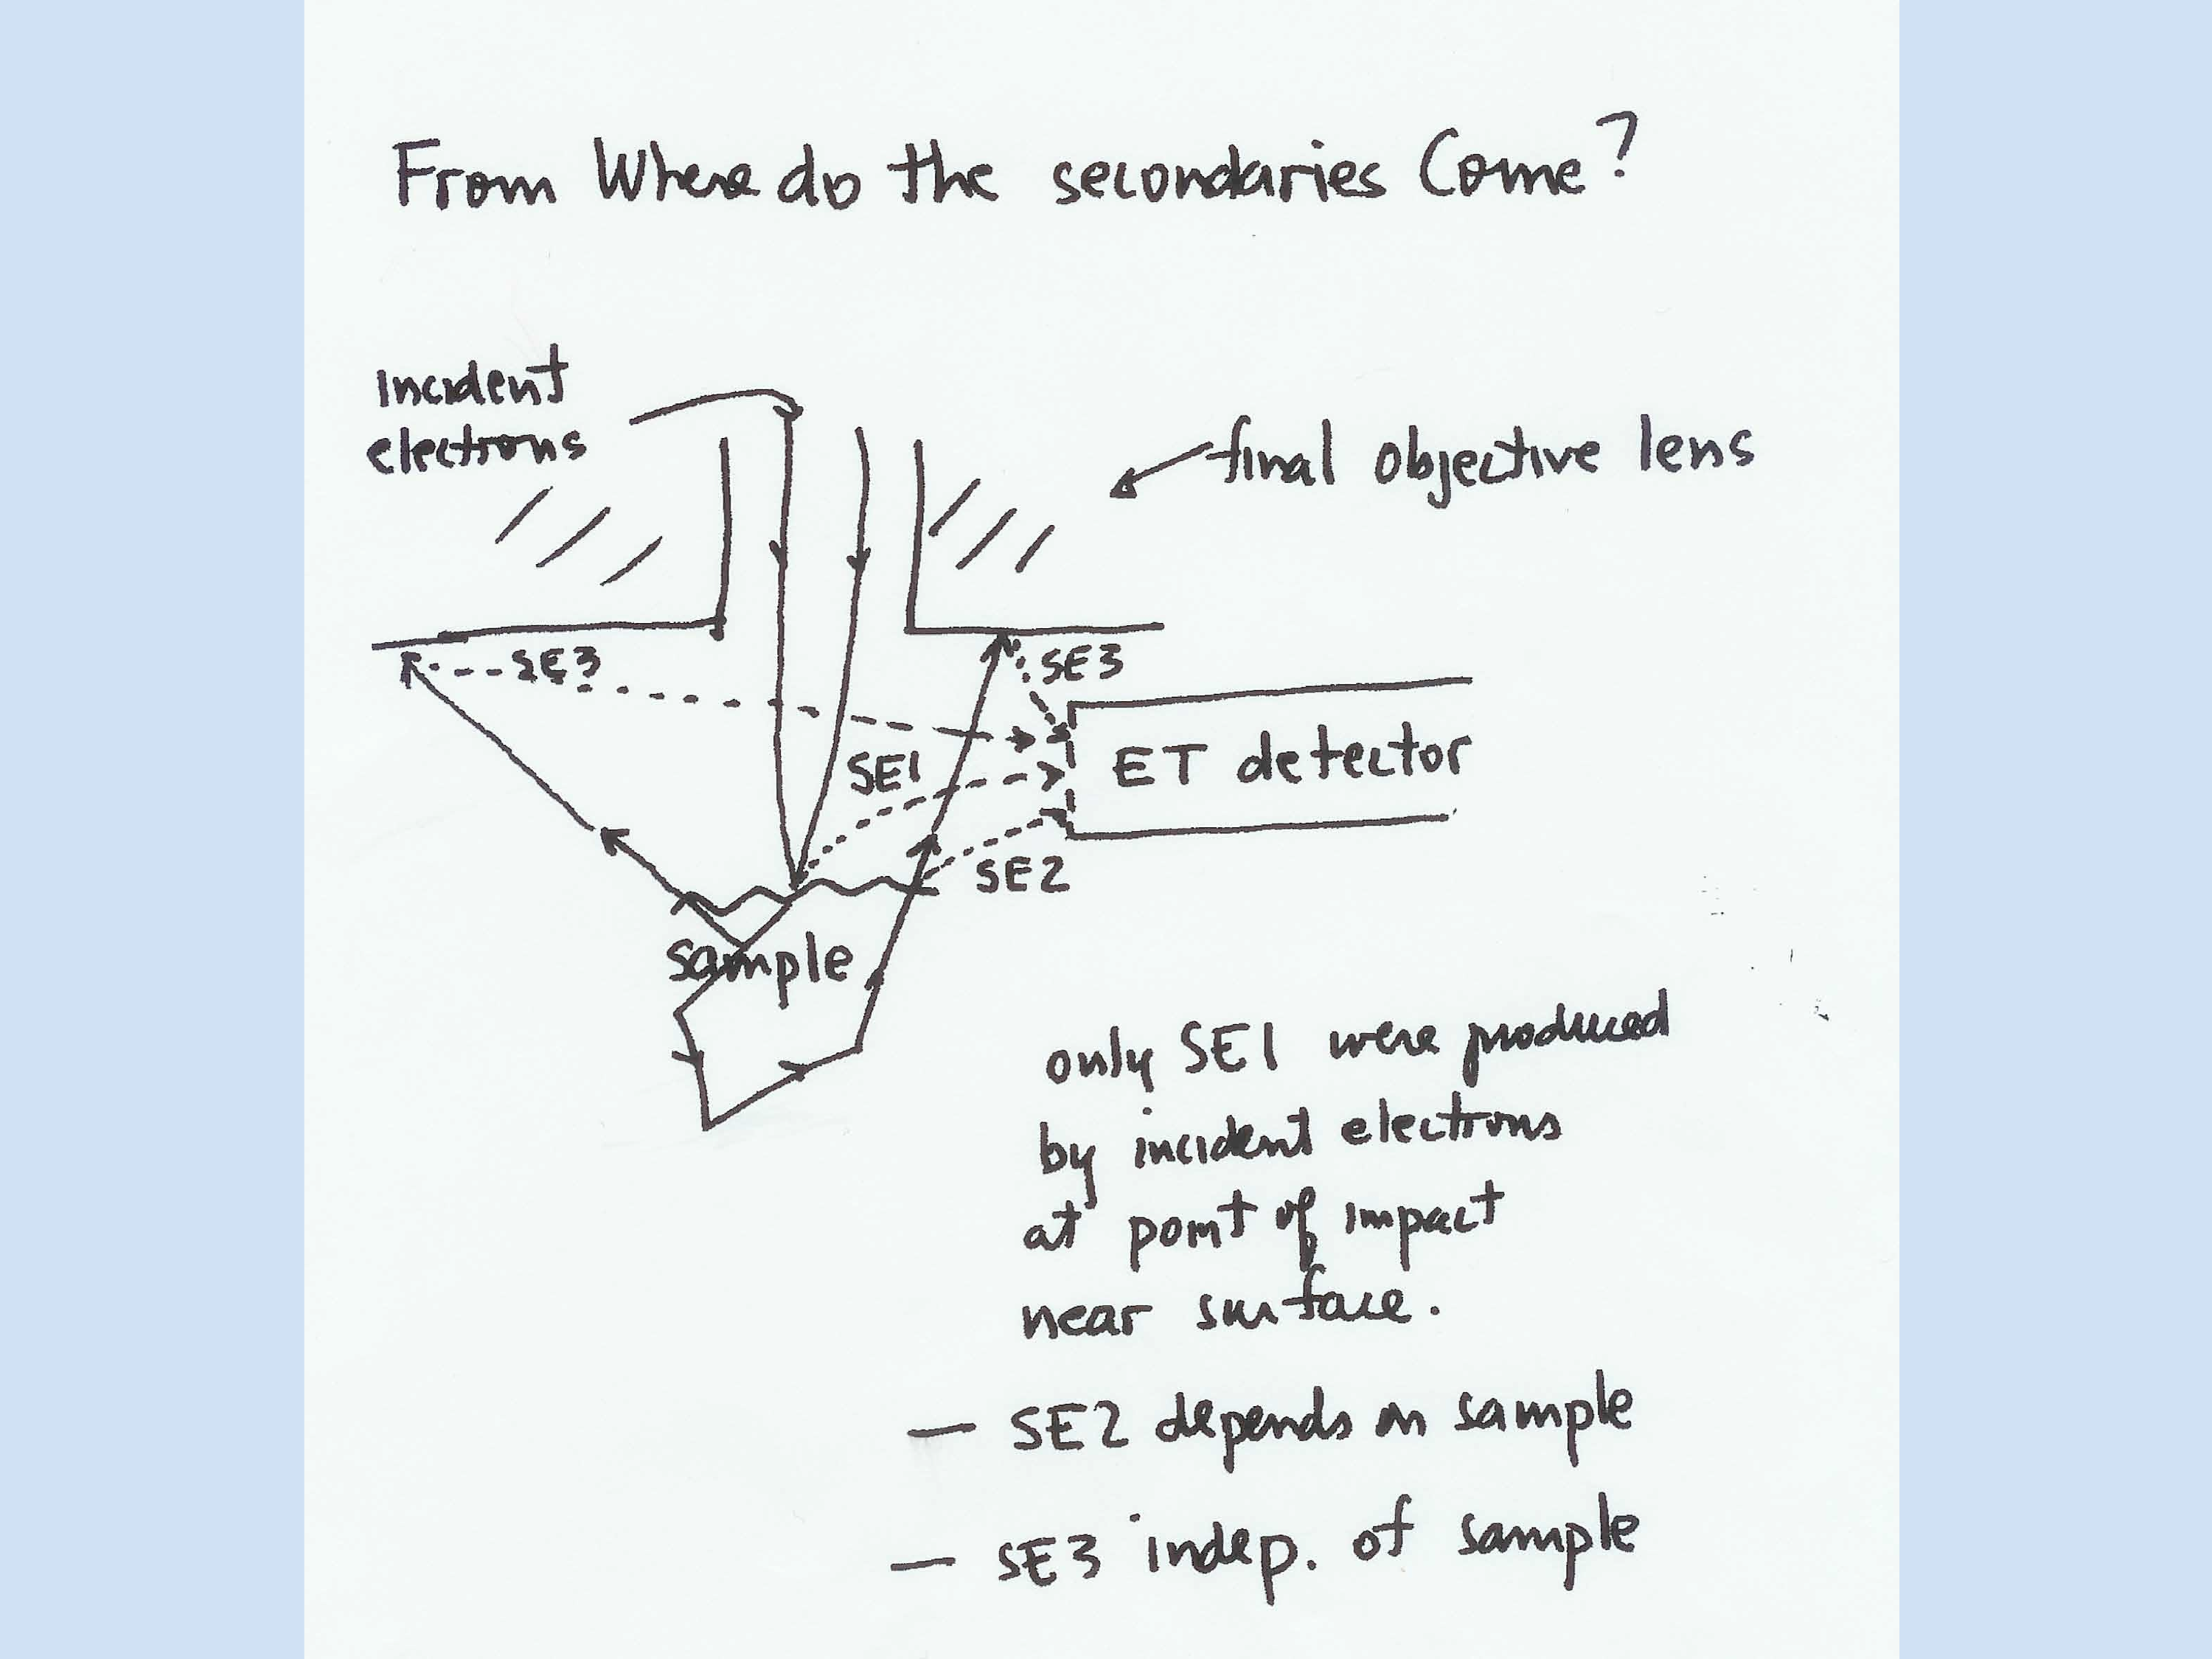 From Where do the secondaries Come?
Incident
electrons
final objective lens
SE3
SE3
SE1
ET detector
SE2
sample
only SE1 were produced
by incident electrons
at point of impact
near surface.
— SE2 depends on sample
— SE3 indep. of sample